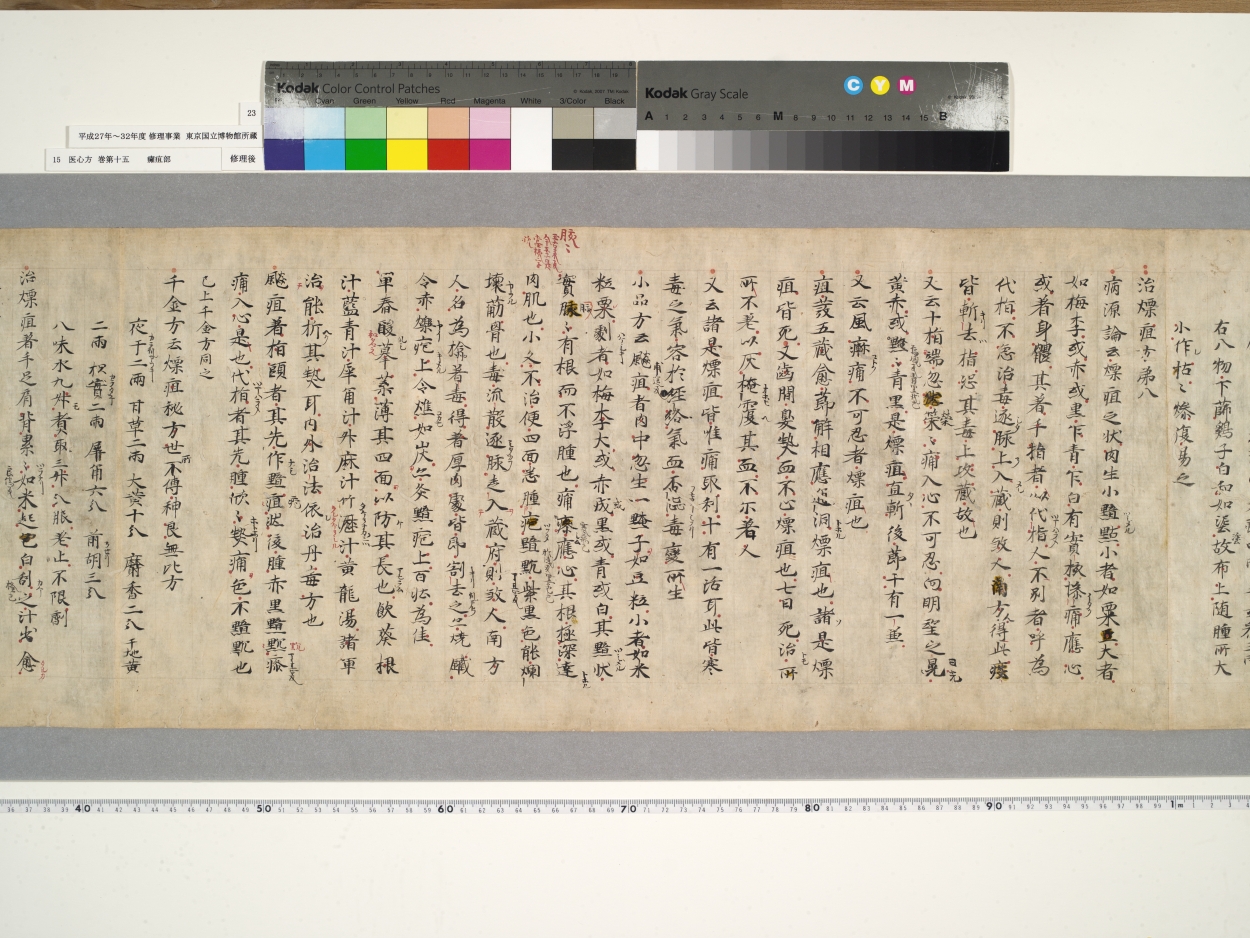 Kodak Color Control Patches
Cyan Green Yellow Red Magenta White 3/Color Black
Kodak Gray Scale
C Y M
A 1 2 3 4 5 6 M 8 9 10 11 12 13 14 15 B
23
平成27年～32年度 修理事業 東京国立博物館所蔵
15 医心方 巻第十五 癰疽部 修理後
小作枯々燥復易之
治熛疽方第八
病源論云熛疽之状肉生小黯點小者如粟豆大者
如梅李或赤或黒乍青乍白有實核惨痛應心
或者身體其着手指者以代指人不別者呼為
代指不急治毒逐脉上入蔵則致人
皆斬去指恐其毒上攻蔵故也
又云十指端忽榮々痛入心不可忍向明望之晃
黄赤或黯々青黒是熛疽直斬後莭十有一
又云風痳痛不可忍者熛疽也
疽發五蔵俞莭解相應通洞熛疽也諸是熛
疽皆死又齒間臭熱血不心熛疽也七日死治所
所不差以灰掩覆其血不尓着人
又云諸是熛疽皆惟痛取利十有一活耳此皆寒
毒之氣客於經絡氣血否澀毒變所生
小品方云瘭疽者肉中忽生一黯子如豆粒小者如米
粒粟劇者如梅李大或赤或黒或青或白其黯状
實々有根而不浮腫也痛應心其根極深達
肉肌也小久不治便四面悉腫黯黕紫黒色能爛
壊筋骨也毒流散逐脉走入蔵府則致人南方
人名為榆着毒得着厚肉處皆即割去之亦燒鐵
令赤烙疤上令燋如炭亦灸黯疤上百壮為佳
軍舂酸草葉薄其四面以防其長也飲葵根
汁藍青汁犀角汁升麻汁竹瀝汁黄龍湯諸軍
治能折其熱耳内外治法依治丹毒方也
瘭疽着指頭者其先作黯疽然後腫赤黒黯黕疼
痛入心是也代指者其先腫焮々熱痛色不黯黕也
已上千金方同之
千金方云熛疽秘方世不傳神良無比方
夜干二兩 甘草二兩 大黄十分 麝香二分 干地黄
二兩 枳實二兩 犀角六分 前胡三分
八味水九升煮取三升八服差止不限劇
治熛疽着手足肩背累々如米起色白刮之汁出愈